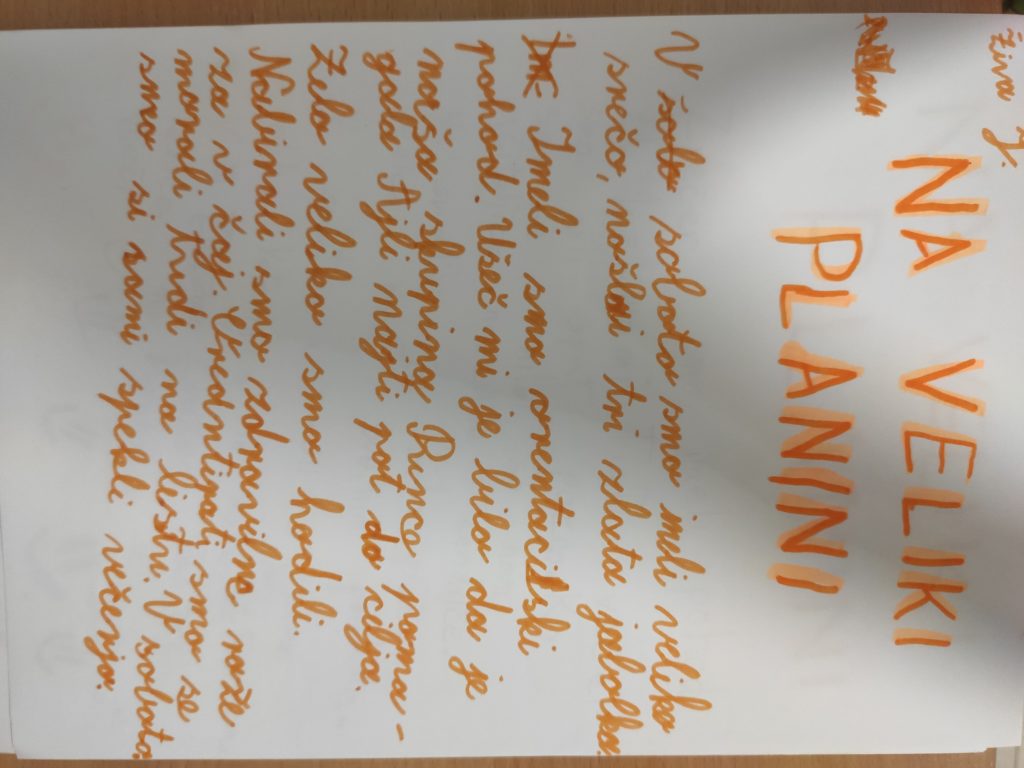 Živa J.
NA VELIKI
PLANINI
V šobo soboto smo imeli veliko
srečo, našli tri zlata jabolka.
Imeli smo orentaciski
pohod. Všeč mi je bilo da je
naša skupina Runo poma-
gala Ajli najti pot do cilja.
Zelo veliko smo hodili.
Nabirali smo zdravilne rože
za v čaj. Uredniti smo se
morali tudi na listu. V soboto
smo si sami spekli večerjo.